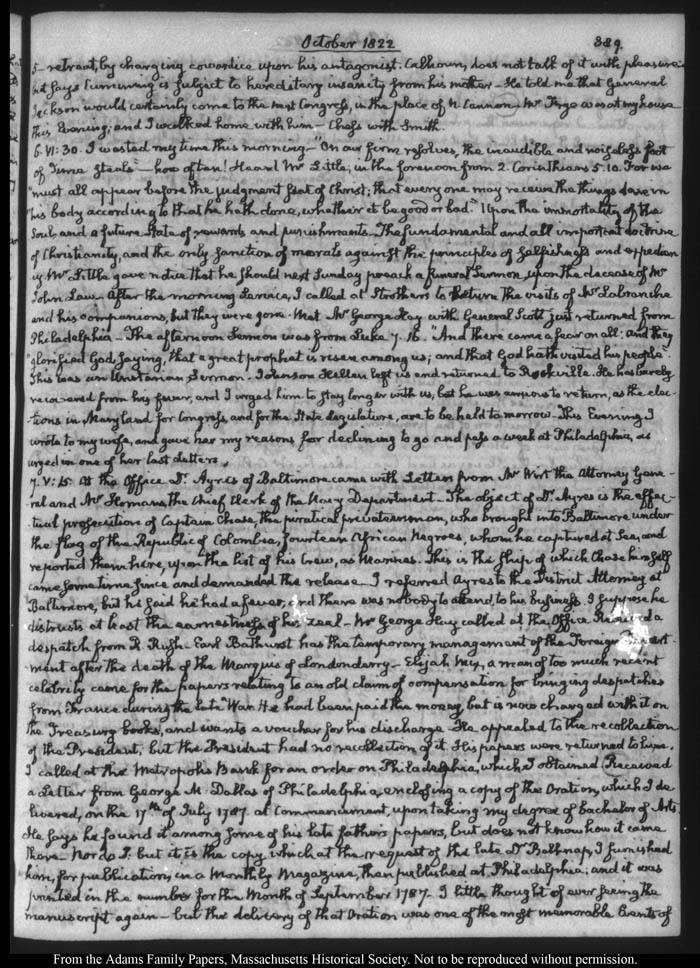 October 1822
389.
5— retreat, by charging cowardice upon his antagonist. Calhoun, does not talk of it with pleasure:
but says Cumming is subject to hereditary insanity from his mother— He told me that General
Jackson would certainly come to the next Congress, in the place of N Cannon— Mr Fry was at my house
this Evening; and I walked home with him— Chess with Smith.
6. VI:30. I wasted my time this morning— "On our firm resolves, the inaudible and noiseless foot
of Time steals"— how often! Heard Mr Little, in the forenoon from 2. Corinthians 5. 10. "For we
"must all appear before the judgment seat of Christ; that every one may receive the things done in
"his body according to that he hath done, whether it be good or bad." Upon the immortality of the
Soul, and a future State of rewards and punishments. The fundamental and all important doctrine
of Christianity, and the only sanction of morals against the principles of selfishness and expedien
cy. Mr Little gave notice that he should next Sunday preach a funeral Sermon, upon the decease of Mr
John Law. After the morning service, I called at Strothers to return the visits of Mr Labranche
and his companions, but they were gone. Met Mr George Hay with General Scott just returned from
Philadelphia— The afternoon Sermon was from Luke 7. 16. "And there came a fear on all: and they
"glorified God, saying, that a great prophet is risen among us; and that God hath visited his people".
This was an Unitarian Sermon— Johnson Hellen left us and returned to Rockville. He has barely
recovered from his fever, and I urged him to stay longer with us, but he was anxious to return, as the elec-
tions in Maryland for Congress, and for the State Legislature, are to be held to morrow— This Evening I
wrote to my wife, and gave her my reasons for declining to go and pass a week at Philadelphia, as
urged in one of her last Letters.
7. V:15. At the Office Dr Ayres of Baltimore came with Letters from Mr Wirt the Attorney Gene-
ral and Mr Homans, the Chief Clerk of the Navy Department— The object of Dr Ayres is the effec-
tual prosecution of Captain Chase, the piratical privateersman, who brought into Baltimore under
the flag of the Republic of Colombia, fourteen African Negroes, whom he captured at Sea, and
reported them here, upon the list of his Crew, as Marines. This is the Ship of which Chase himself
came some time since and demanded the release. I referred Ayres to the District Attorney at
Baltimore, but he said he had a fever, and there was nobody to attend, to his business. I suppose he
distrusts at least the earnestness of his zeal— Mr George Hay called at the Office. Received a
despatch from R. Rush— Earl Bathurst has the temporary management of the Foreign Depart-
ment after the death of the Marquis of Londonderry— Elijah Mix, a man of too much recent
celebrity came for the papers relating to an old claim of compensation for bringing despatches
from France during the late War. He had been paid the money, but is now charged with it on
the Treasury books, and wants a voucher for his discharge. He appealed to the recollection
of the President; but the President had no recollection of it. His papers were returned to him.
I called at the Metropolis Bank for an order on Philadelphia, which I obtained. Received
a Letter from George M. Dallas of Philadelphia, enclosing a copy of the Oration, which I de
livered, on the 17th of July 1787. at Commencement, upon taking my degree of bachelor of Arts.
He says he found it among some of his late father's papers, but does not know how it came
there— Nor do I. but it is the copy which at the request of the late Dr Belknap, I furnished
him, for publication, in a Monthly Magazine, then published at Philadelphia; and it was
printed in the number for the Month of September 1787. I little thought of ever seeing the
manuscript again— but the delivery of that Oration was one of the most memorable Events of
From the Adams Family Papers, Massachusetts Historical Society. Not to be reproduced without permission.